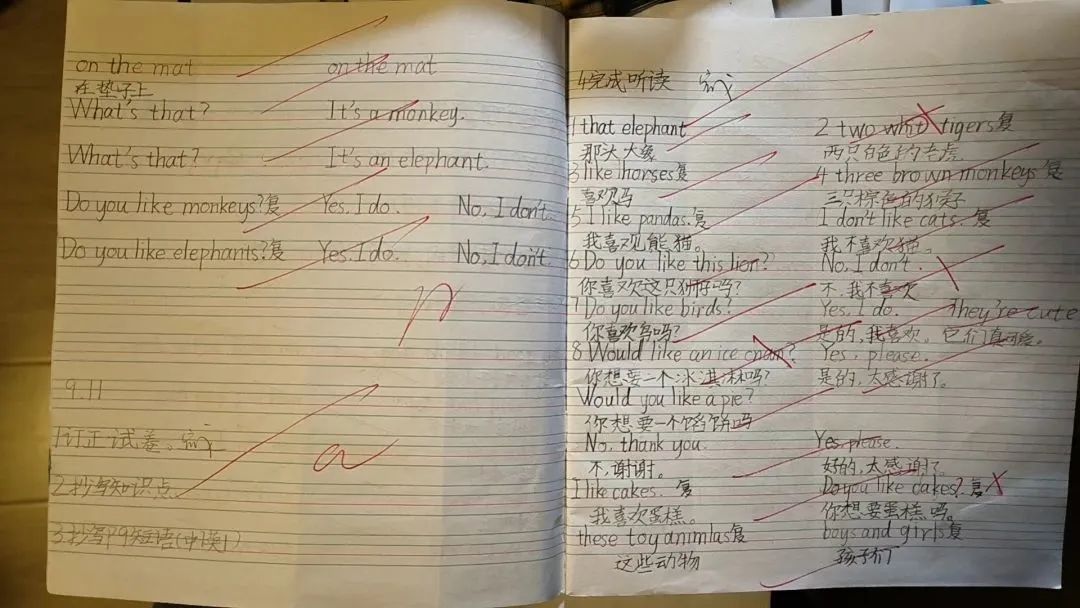 on the mat on the mat
在垫子上
What's that? It's a monkey.
What's that? It's an elephant.
Do you like monkeys?复 Yes, I do. No, I don't.
Do you like elephants?复 Yes, I do. No, I don't.
9.11
1订正试卷。
2.抄写知识点
3.抄写P9短语(中读1)
4完成听读
1 that elephant 2 two whit tigers复
那头大象 两只白色的老虎
3 like horses复 4 three brown monkeys复
喜欢马 三只棕色的猴子
5 I like pandas.复 I don't like cats.复
我喜欢熊猫。 我不喜欢猫。
6 Do you like this lion? No, I don't.
你喜欢这只狮子吗? 不,我不喜欢
7 Do you like birds? Yes, I do. They're cute
你喜欢鸟吗? 是的,我喜欢。它们真可爱。
8 Would like an ice cream? Yes, please.
你想要一个冰淇淋吗? 是的,太感谢了。
Would you like a pie?
你想要一个馅饼吗
No, thank you. Yes, please
不,谢谢。 好的,太感谢了。
I like cakes. 复 Do you like cakes?复
我喜欢蛋糕。 你想要蛋糕吗。
these toy animlas复 boys and girls复
这些动物 孩子们